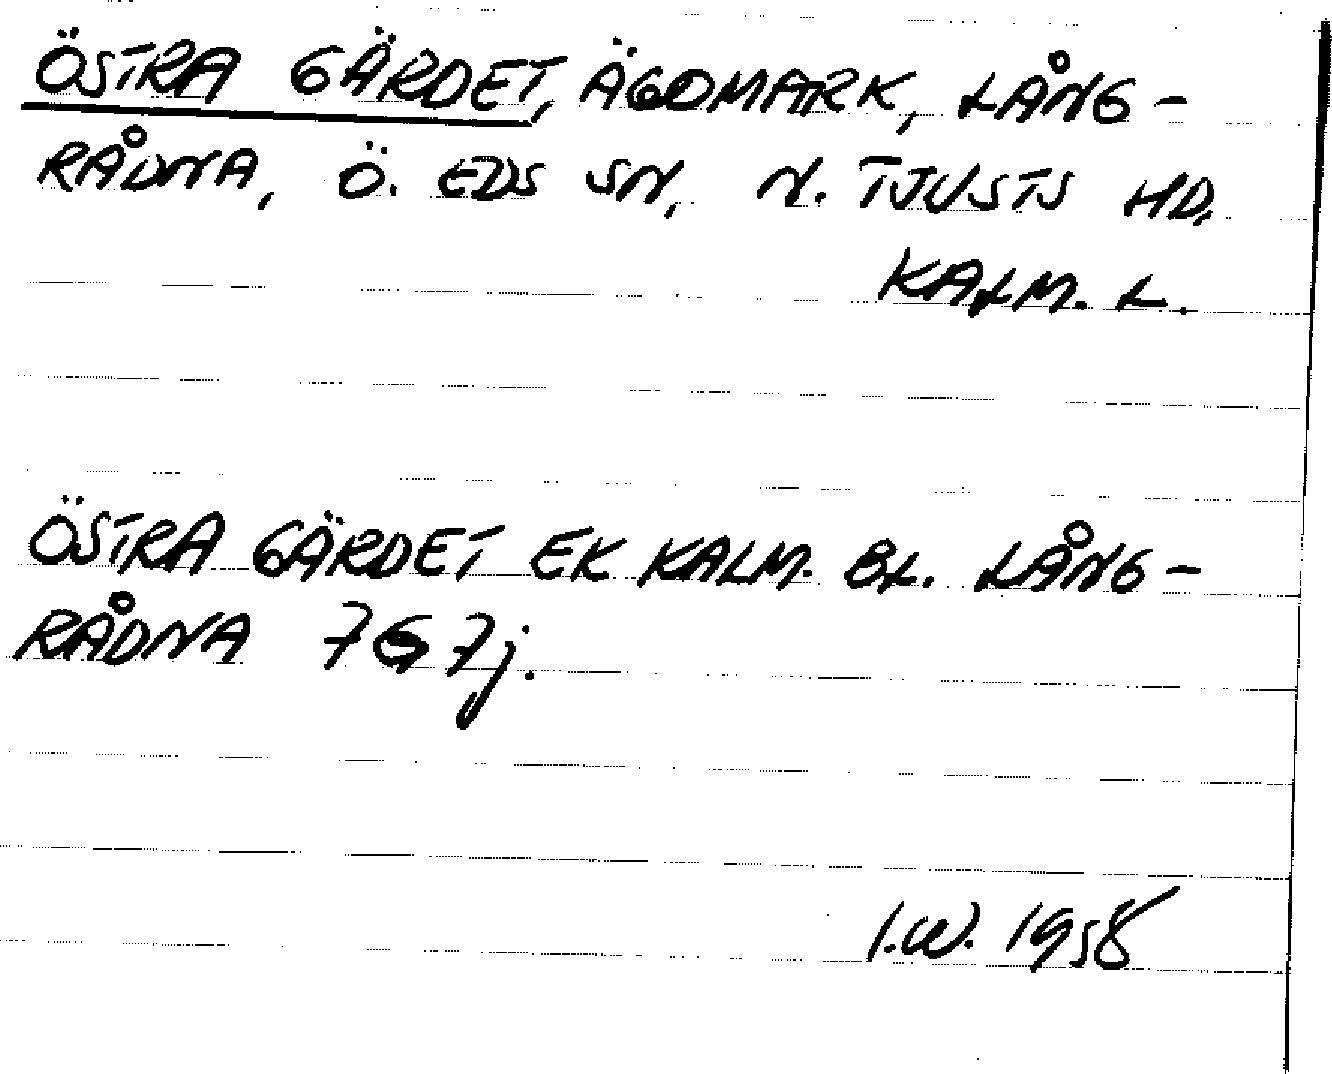 ÖSTRA GÄRDET, ÄGOMARK, LÅNG-
RÅDNA, Ö. EDS SN, N. TJUSTS HD,
KALM. L.
ÖSTRA GÄRDET EK KALM. BL. LÅNG-
RÅDNA 7G7j.
I.W. 1958